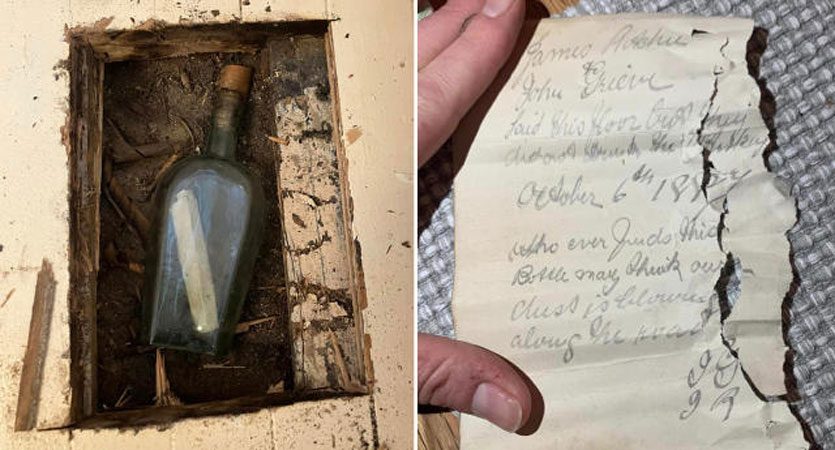 James Ritchie
& John Grieve
laid this floor but they
did not drink the whisky
October 6th 1887
Who ever finds this
Bottle may think our
dust is blowing
along the road
J G
J R